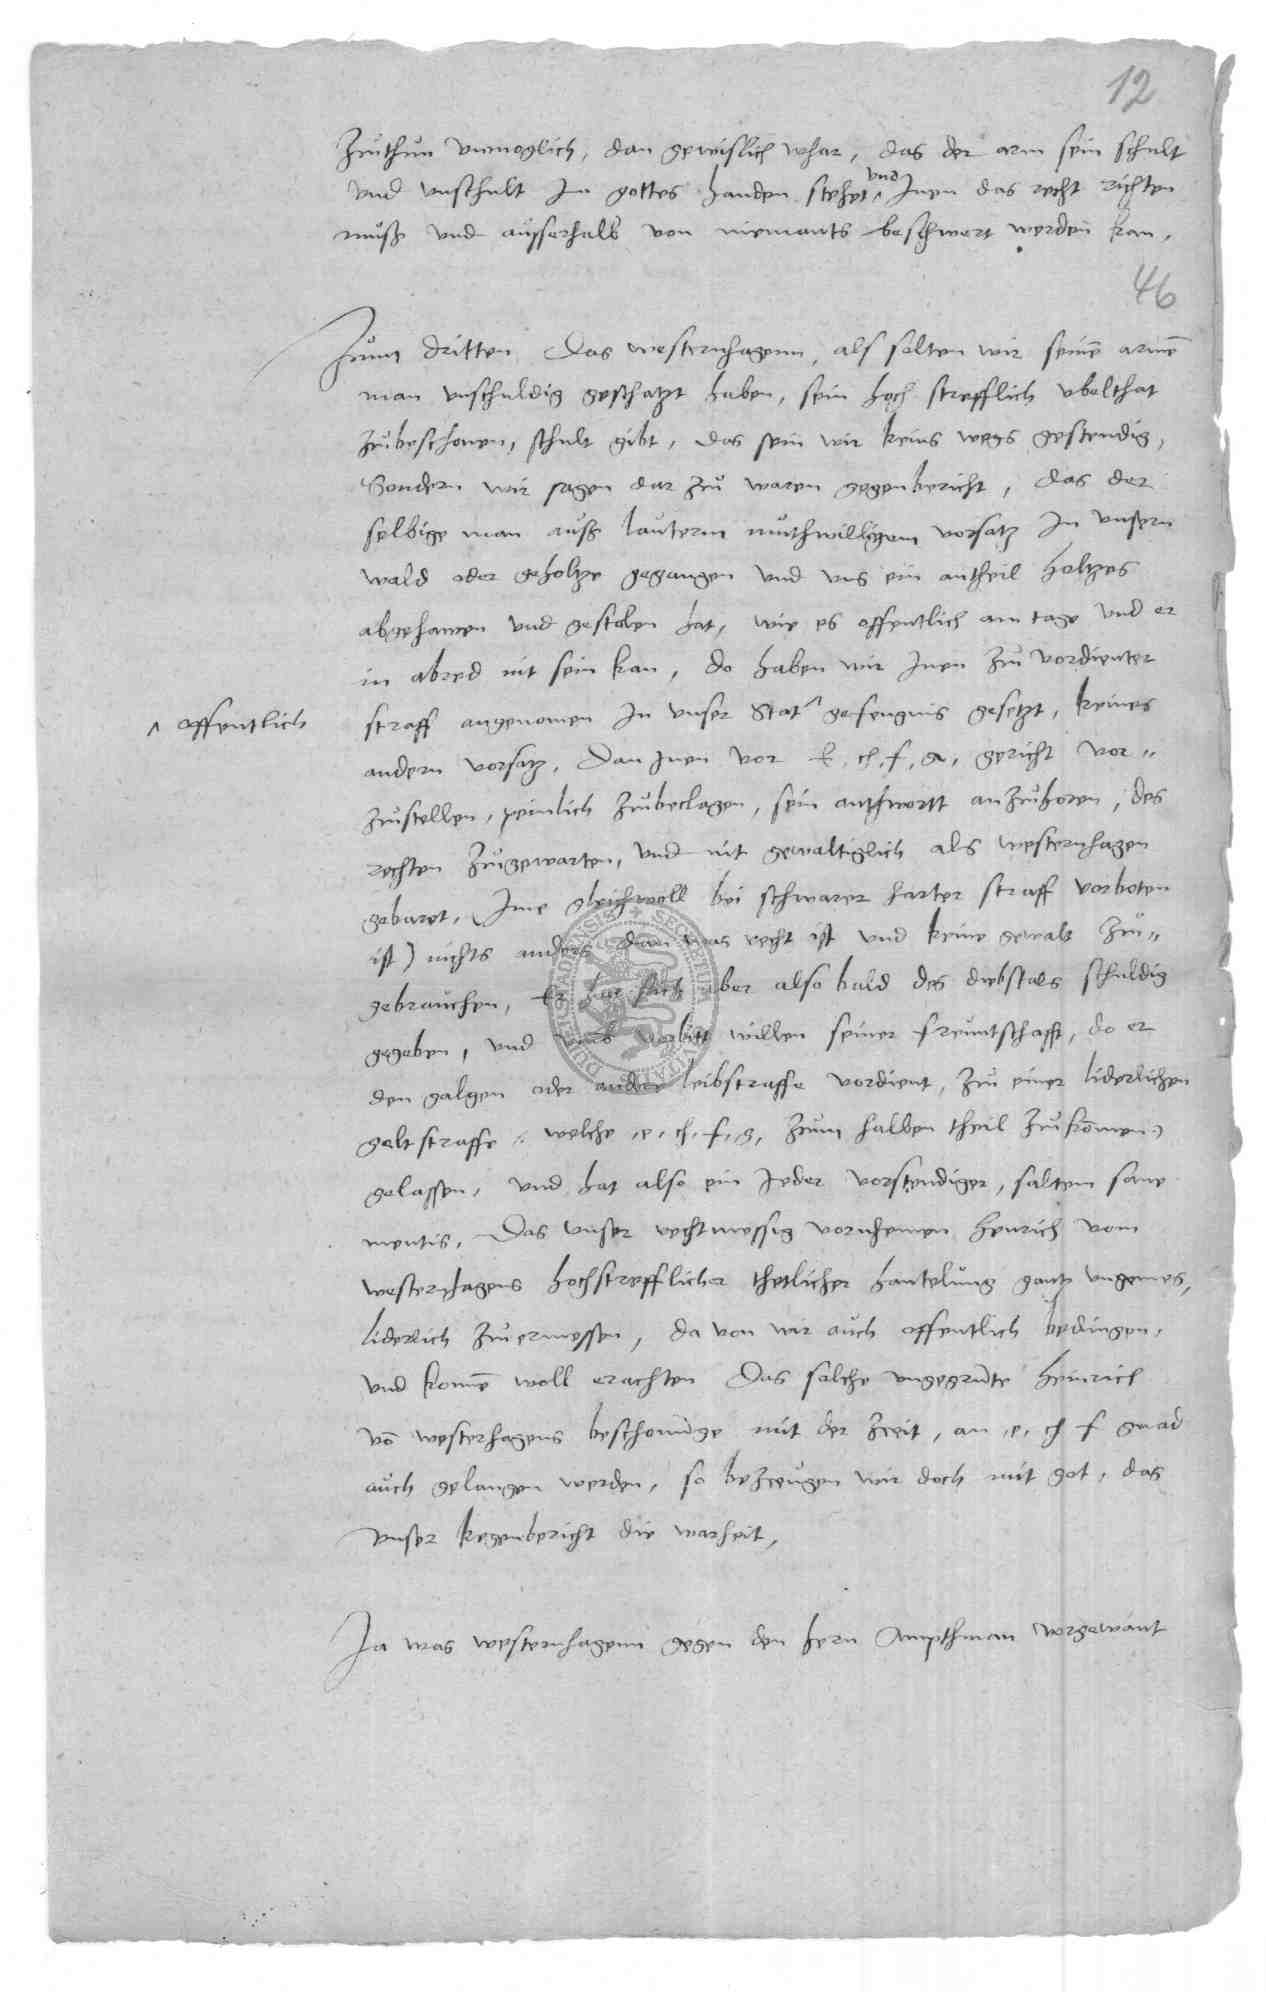 12
zuthun vnmoglich, dan gewislich whar, das der arm sein schult
vnd vnschult In gottes handen stehet ^vnd Inen das recht richten
muß vnd ausserhalb von niemants beschwert werden kan,
46
Zum dritten Das westernhagenn, als solten wir seinē armē
man vnschuldig geschatzt haben, sein hoch strefflich vbelthat
zubeschonen, schult gibt, das sein wir keins wegs gestendig,
Sondern wir sagen dar zu waren gegenbericht, das der
selbige man auß lauterm muthwilligem vorsatz In vnsern
wald oder geholtze gegangen vnd vns ein antheil holtzes
abgehawen vnd gestolen hat, wie es offentlich am tage vnd er
in abred nit sein kan, do haben wir Inen zu vordienter
^ offentlich
straff angenomen In vnser Stat^ gefengnis gesetzt, keines
andern vorsatz, Dan Inen vor E, ch, f, g, gericht vor"
zustellen, peinlich zubeclagen, sein anthwortt anzuhoren, des
rechten zugewarten, vnd nit gewaltiglich als westernhagen
gebaret, (Ime gleichwoll bei schwarer harter straff vorboten
ist) nichts anders dan was recht ist vnd keine gewalt zu"
gebrauchen, Er hat sich aber also bald des diebstals schuldig
gegeben, vnd vmb vorbitt willen seiner freuntschafft, do er
den galgen oder ander leibstraffe vordient, zu einer liderlichen
gelt straffe, welche, e, ch, f, g, zum halben theil zukōmen,
gelassen, vnd hat also ein Jeder vorstendiger, saltem sane
mentis, Das vnser rechtmessig vornhemen Henrich vom
westernhagens hochstrefflicher thetlicher hantelung gantz vngemes,
liderlich zuermessen, da von wir auch offentlich bedingen,
vnd konnē woll erachten Das solche vngegrūte Heinrich
vō westerhagens beschonunge mit der Zceit, an, e, ch f gnad
auch gelangen werden, so bezceugen wir doch mit got, das
vnser kegenbericht die warheit,
Ja was westernhagenn gegen den hern Ampthman vorgewant